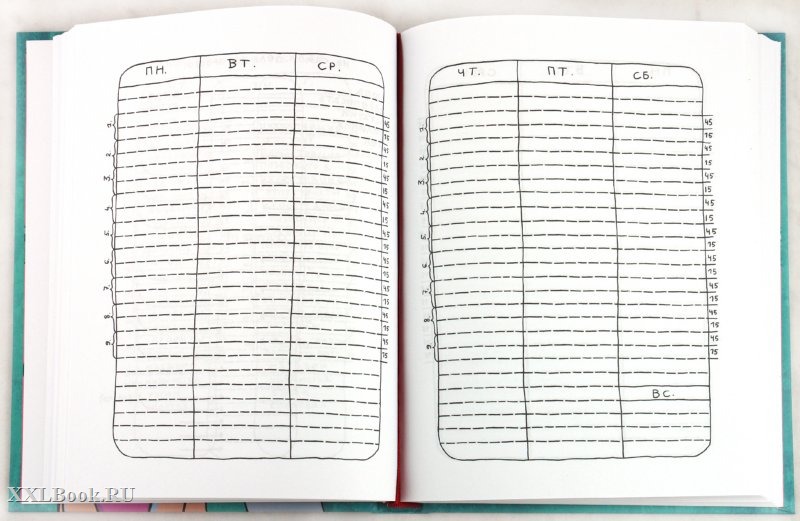 ПН. ВТ. СР.
1.
2.
3.
4.
5.
6.
7.
8.
9.
45
15
45
15
45
15
45
15
45
15
45
15
45
15
45
15
45
15
ЧТ. ПТ. СБ.
1.
2.
3.
4.
5.
6.
7.
8.
9.
45
15
45
15
45
15
45
15
45
15
45
15
45
15
45
15
45
15
ВС.
XXLBook.РU